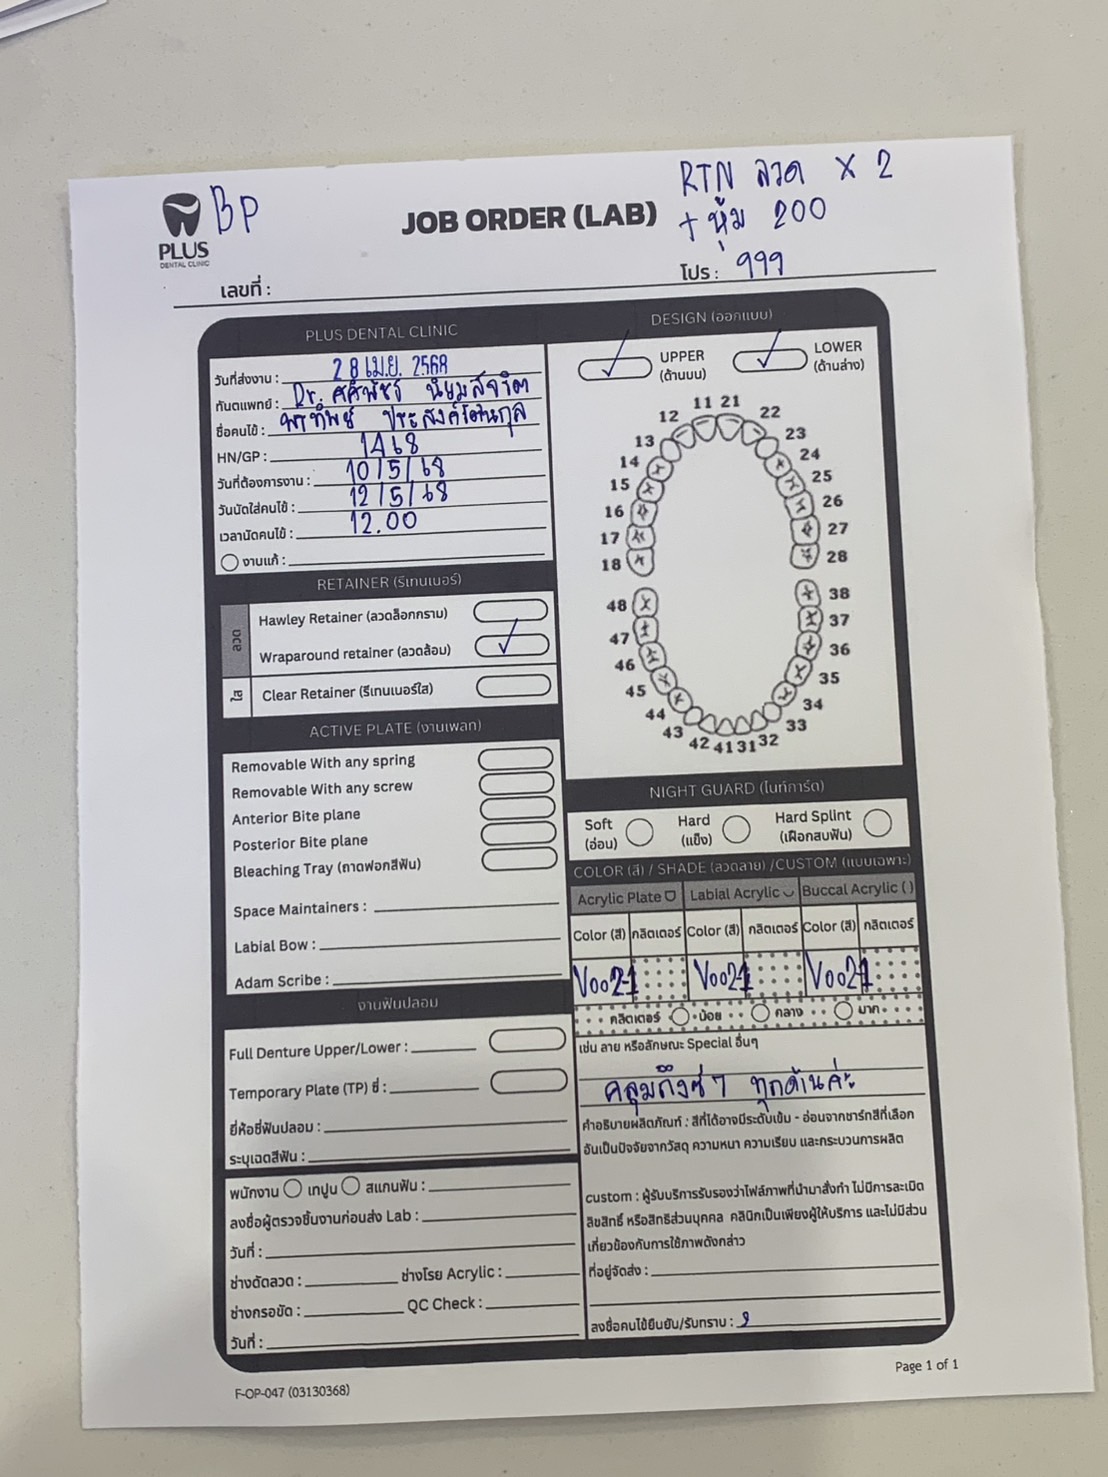 BP
PLUS
DENTAL CLINIC
JOB ORDER (LAB)
RTN ลวด X 2
+ หุ้ม 200
โปร : 999
เลขที่ :
PLUS DENTAL CLINIC
วันที่ส่งงาน : 28 เม.ย. 2568
ทันตแพทย์ : Dr. ศศิพัชร์ นิยมสุจริต
ชื่อคนไข้ : ประสงค์โภคนกุล
HN/GP : 1468
วันที่ต้องการงาน : 10/5/68
วันนัดใส่คนไข้ : 12/5/68
เวลานัดคนไข้ : 12.00
งานแก้ :
RETAINER (รีเทนเนอร์)
ลวด
Hawley Retainer (ลวดล็อกกราม)
Wraparound retainer (ลวดล้อม)
ใส
Clear Retainer (รีเทนเนอร์ใส)
ACTIVE PLATE (งานเพลท)
Removable With any spring
Removable With any screw
Anterior Bite plane
Posterior Bite plane
Bleaching Tray (ถาดฟอกสีฟัน)
Space Maintainers :
Labial Bow :
Adam Scribe :
งานฟันปลอม
Full Denture Upper/Lower :
Temporary Plate (TP) ซี่ :
ยี่ห้อซี่ฟันปลอม :
ระบุเฉดสีฟัน :
พนักงาน เทปูน สแกนฟัน :
ลงชื่อผู้ตรวจชิ้นงานก่อนส่ง Lab :
วันที่ :
ช่างดัดลวด : ช่างโรย Acrylic :
ช่างกรอขัด : QC Check :
วันที่ :
DESIGN (ออกแบบ)
UPPER
(ด้านบน)
LOWER
(ด้านล่าง)
11 21
12 22
13 23
14 24
15 25
16 26
17 27
18 28
48 38
47 37
46 36
45 35
44 34
43 33
42 41 31 32
NIGHT GUARD (ไนท์การ์ด)
Soft
(อ่อน)
Hard
(แข็ง)
Hard Splint
(เฝือกสบฟัน)
COLOR (สี) / SHADE (ลวดลาย) /CUSTOM (แบบเฉพาะ)
Acrylic Plate Labial Acrylic Buccal Acrylic ( )
Color (สี) กลิตเตอร์ Color (สี) กลิตเตอร์ Color (สี) กลิตเตอร์
V002-1 V002-1 V002-1
กลิตเตอร์ น้อย กลาง มาก
เช่น ลาย หรือลักษณะ Special อื่นๆ
คลุมถึงซี่ 7 ทุกด้านค่ะ
คำอธิบายผลิตภัณฑ์ : สีที่ได้อาจมีระดับเข้ม - อ่อนจากชาร์ทสีที่เลือก
อันเป็นปัจจัยจากวัสดุ ความหนา ความเรียบ และกระบวนการผลิต
custom : ผู้รับบริการรับรองว่าไฟล์ภาพที่นำมาสั่งทำ ไม่มีการละเมิด
ลิขสิทธิ์ หรือสิทธิส่วนบุคคล คลินิกเป็นเพียงผู้ให้บริการ และไม่มีส่วน
เกี่ยวข้องกับการใช้ภาพดังกล่าว
ที่อยู่จัดส่ง :
ลงชื่อคนไข้ยืนยัน/รับทราบ :
Page 1 of 1
F-OP-047 (03130368)